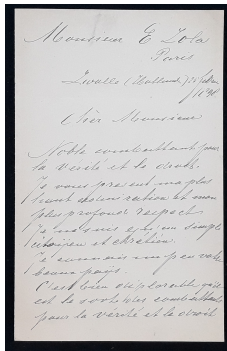 Monsieur E Zola
Paris
Zwolle (Holland) 25
Cher Monsieur
Noble combattant pour
la vérité et le droit.
Je vous présent ma plus
haut admiration et mon
plus profond respect.
Je ne suis qu'un simple
citoyen et chrétien.
Je connais un peu votre
beau pays.
C'est bien déplorable
est le sort des combattants
pour la vérité et le droit